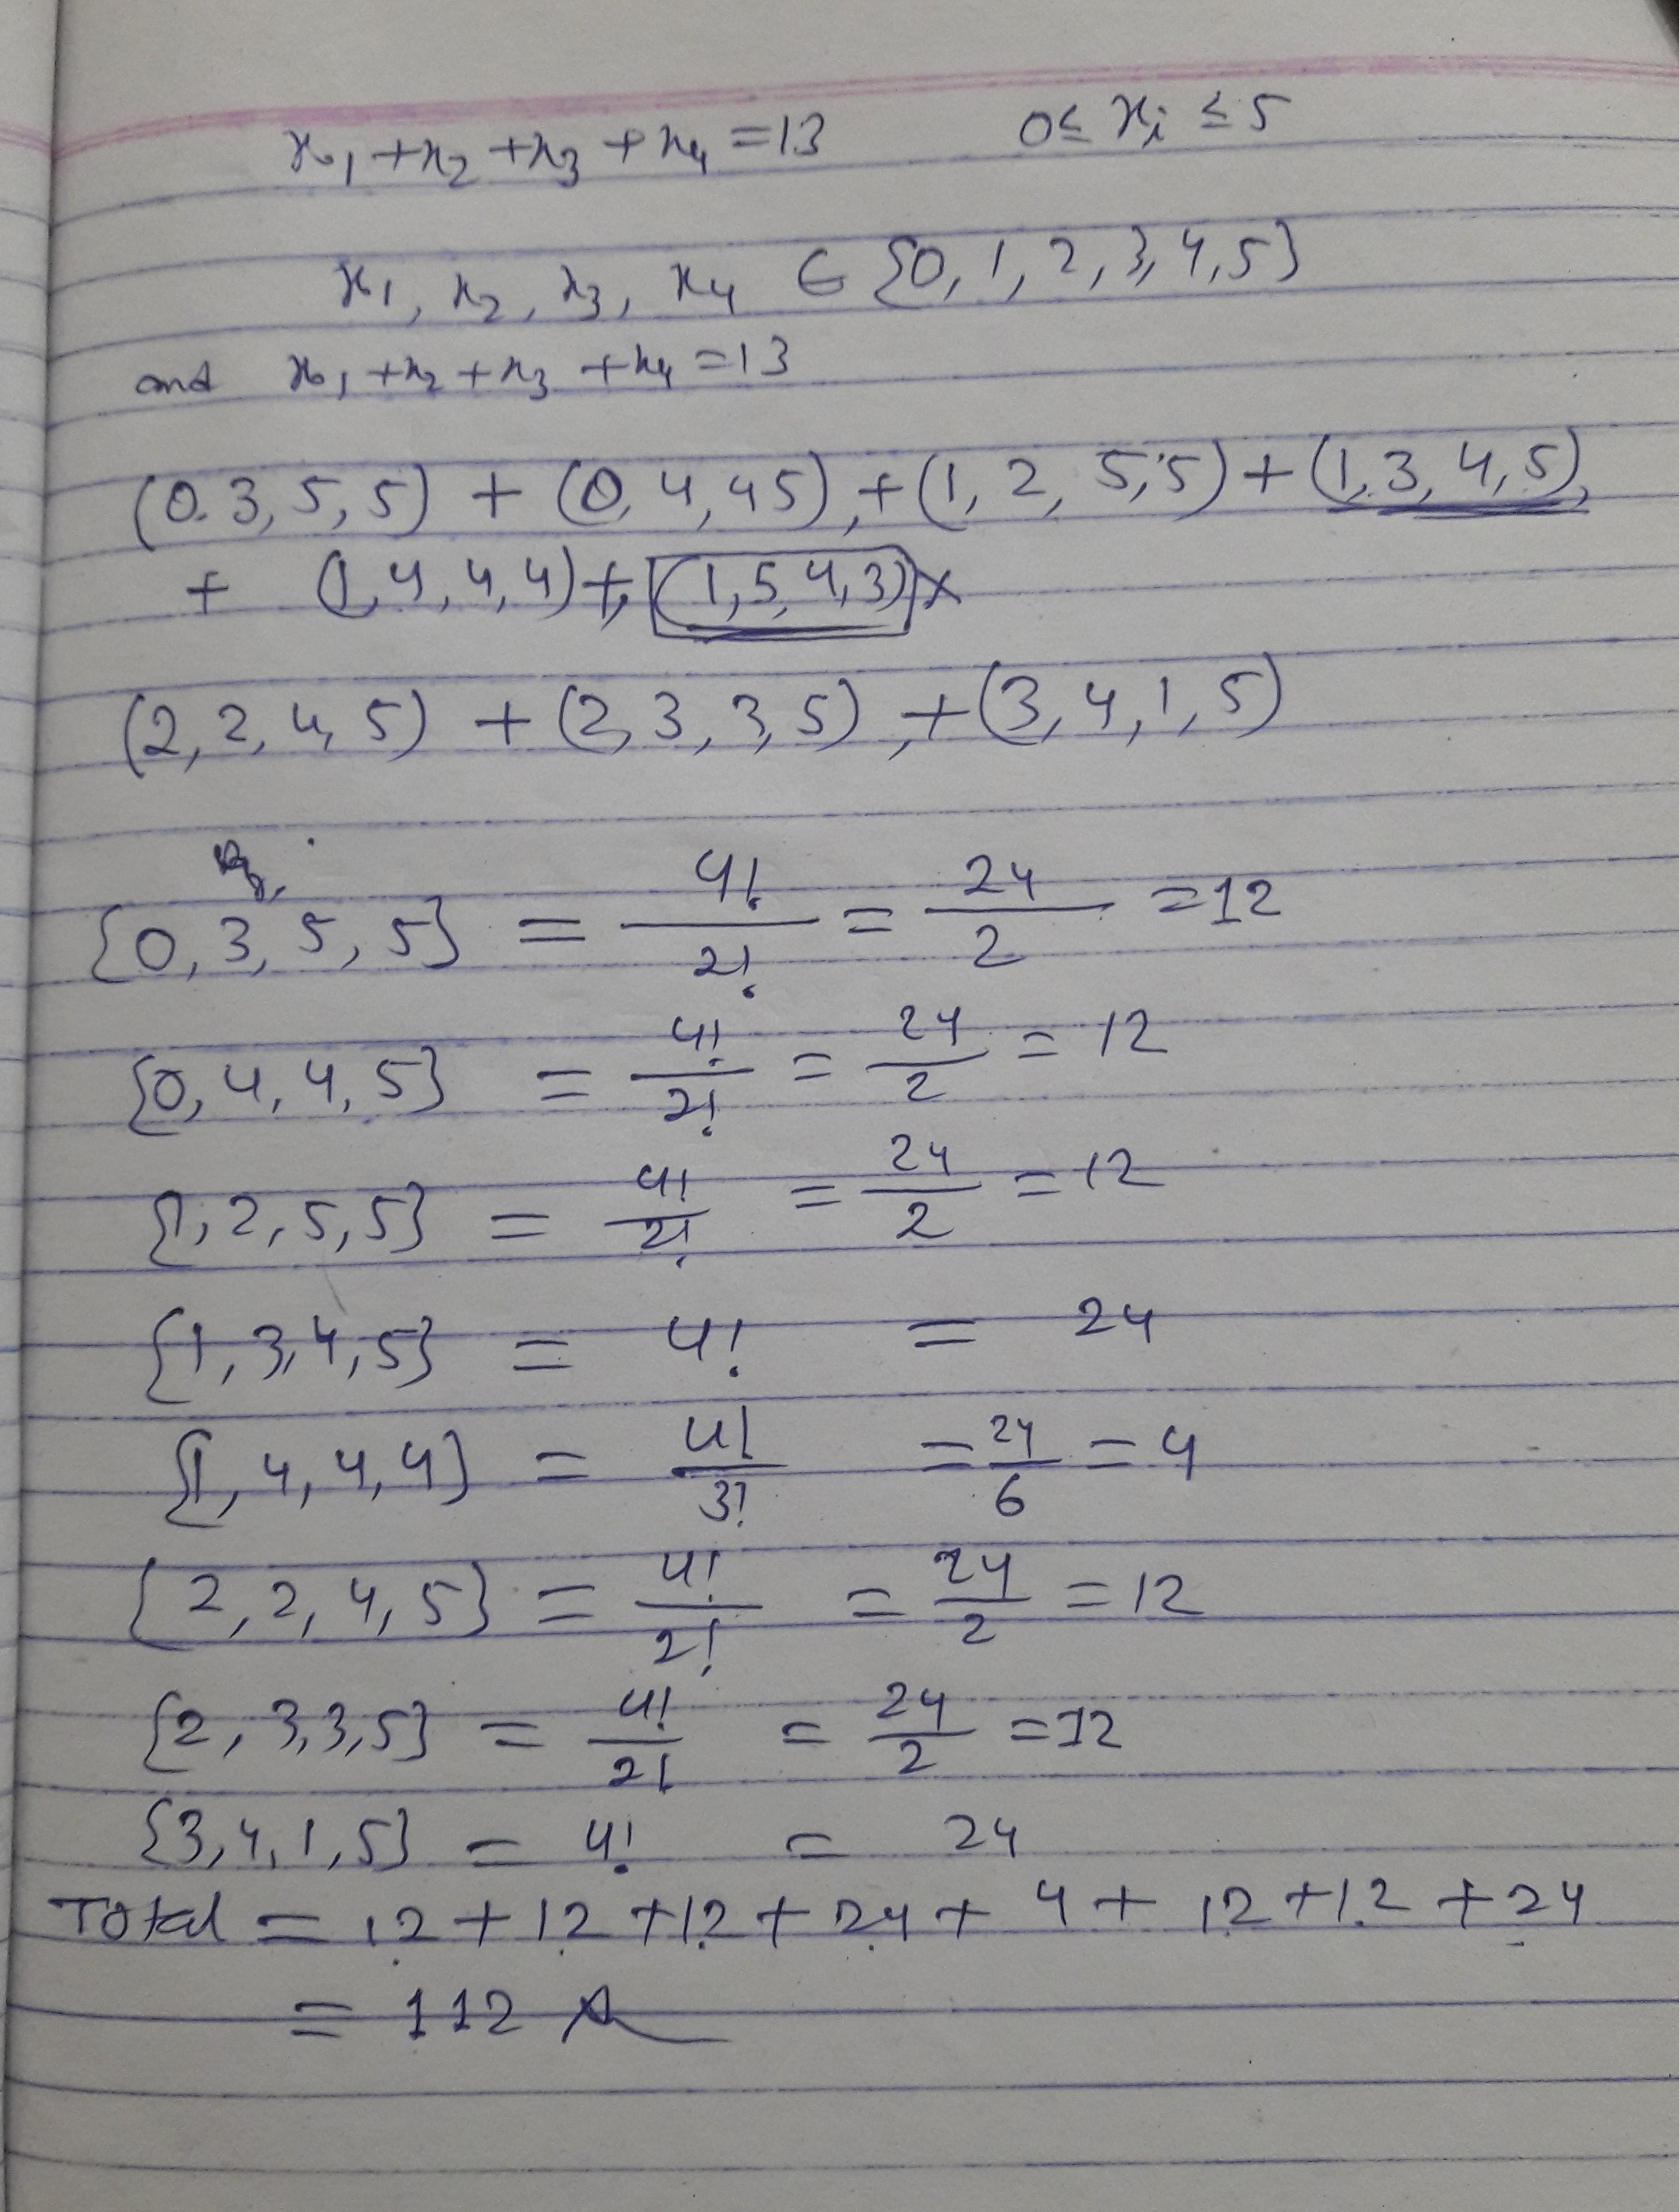 x₁ + x₂ + x₃ + x₄ = 13    0 ≤ xᵢ ≤ 5
x₁, x₂, x₃, x₄ ∈ {0, 1, 2, 3, 4, 5}
and x₁ + x₂ + x₃ + x₄ = 13
(0. 3, 5, 5) + (0, 4, 4 5), + (1, 2, 5, 5) + (1, 3, 4, 5),
+ (1, 4, 4, 4) +, (1, 5, 4, 3) ×
(2, 2, 4, 5) + (2, 3, 3, 5), + (3, 4, 1, 5)
{0, 3, 5, 5} = 4!/2! = 24/2 = 12
{0, 4, 4, 5} = 4!/2! = 24/2 = 12
{1, 2, 5, 5} = 4!/2! = 24/2 = 12
{1, 3, 4, 5} = 4! = 24
{1, 4, 4, 4} = 4!/3! = 24/6 = 4
{2, 2, 4, 5} = 4!/2! = 24/2 = 12
{2, 3, 3, 5} = 4!/2! = 24/2 = 12
{3, 4, 1, 5} = 4! = 24
Total = 12 + 12 + 12 + 24 + 4 + 12 + 12 + 24
= 112